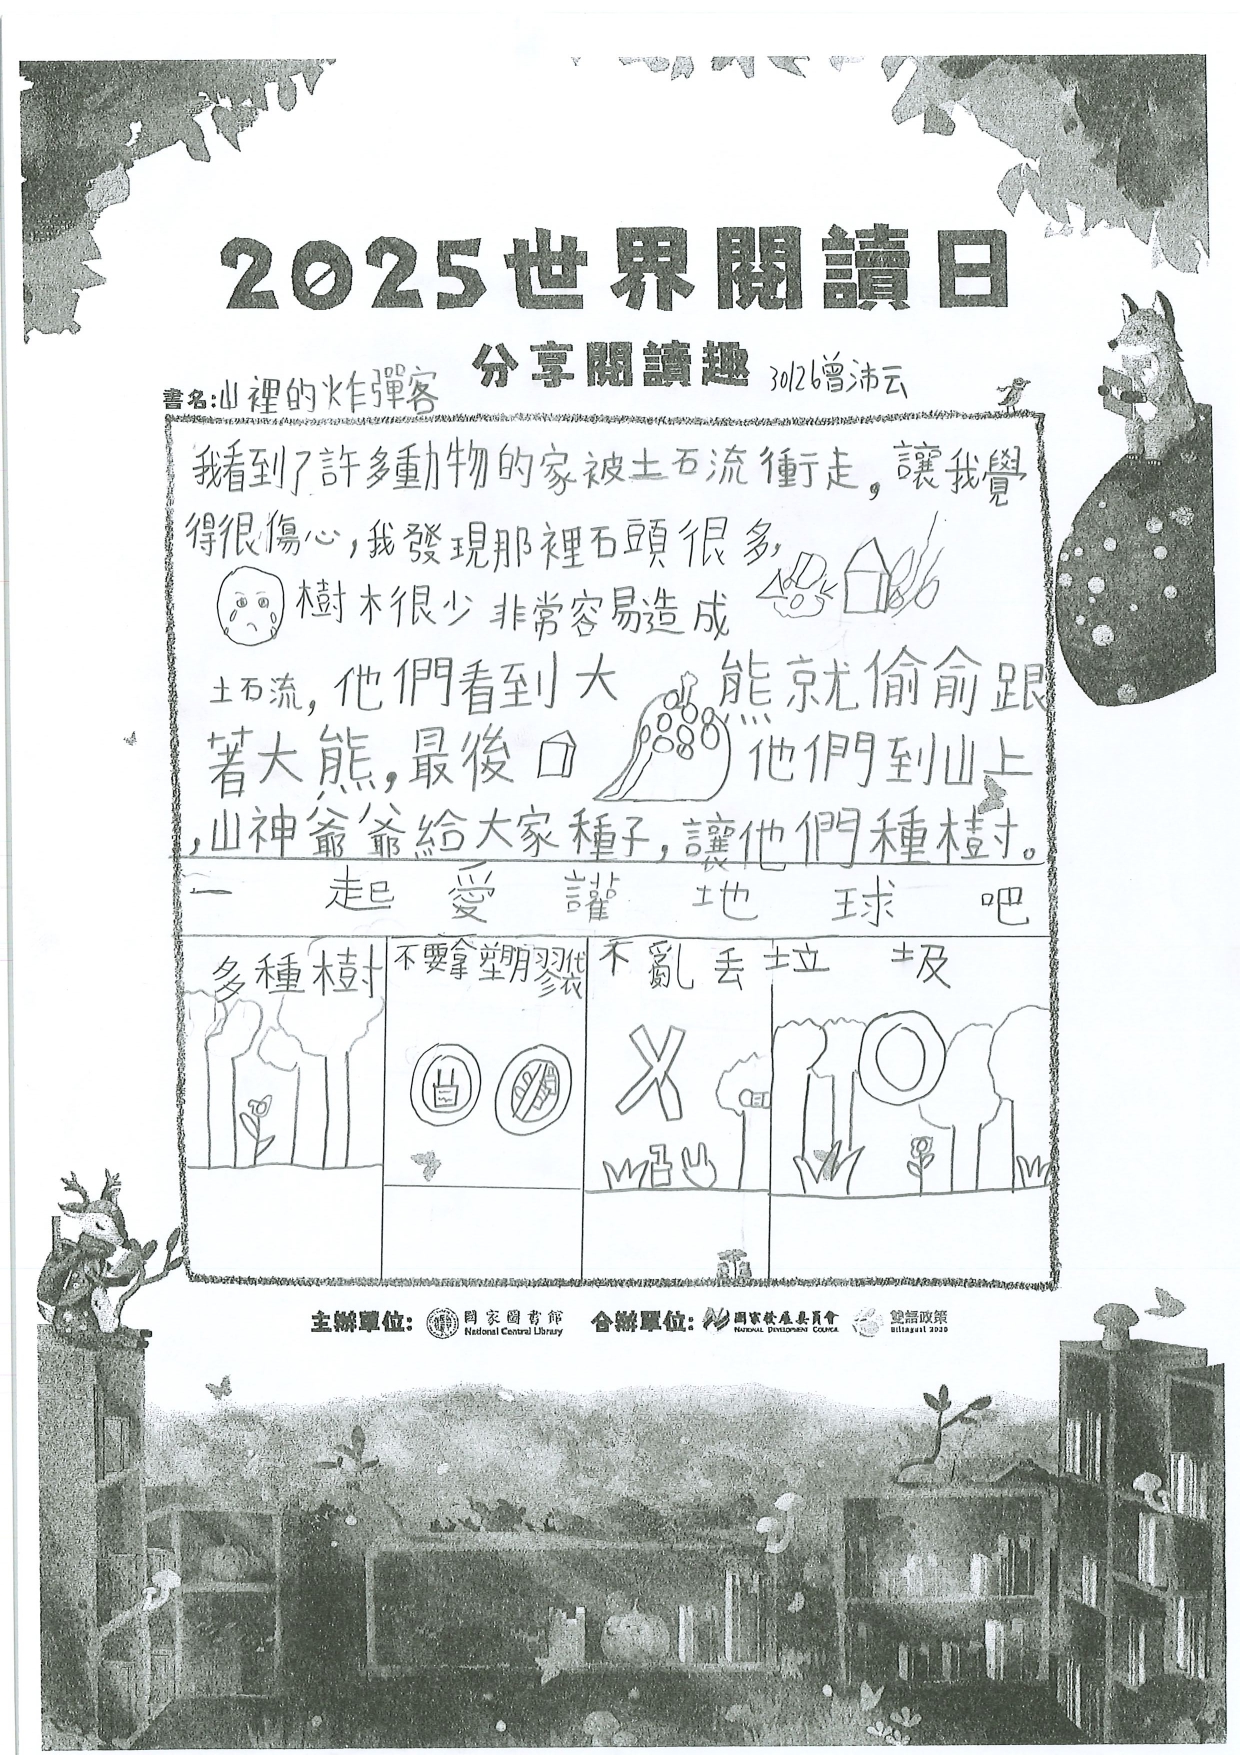 2025世界閱讀日
分享閱讀趣
30126曾沛云
書名:山裡的炸彈客
我看到了許多動物的家被土石流衝走,讓我覺
得很傷心,我發現那裡石頭很多,
樹木很少非常容易造成
土石流,他們看到大熊就偷偷跟
著大熊,最後他們到山上
,山神爺爺給大家種子,讓他們種樹。
一起愛護地球吧
多種樹
不要拿塑膠袋
不亂丟垃圾
主辦單位: 國家圖書館 National Central Library 合辦單位: 國家發展委員會 National Development Council 雙語政策 Bilingual 2030